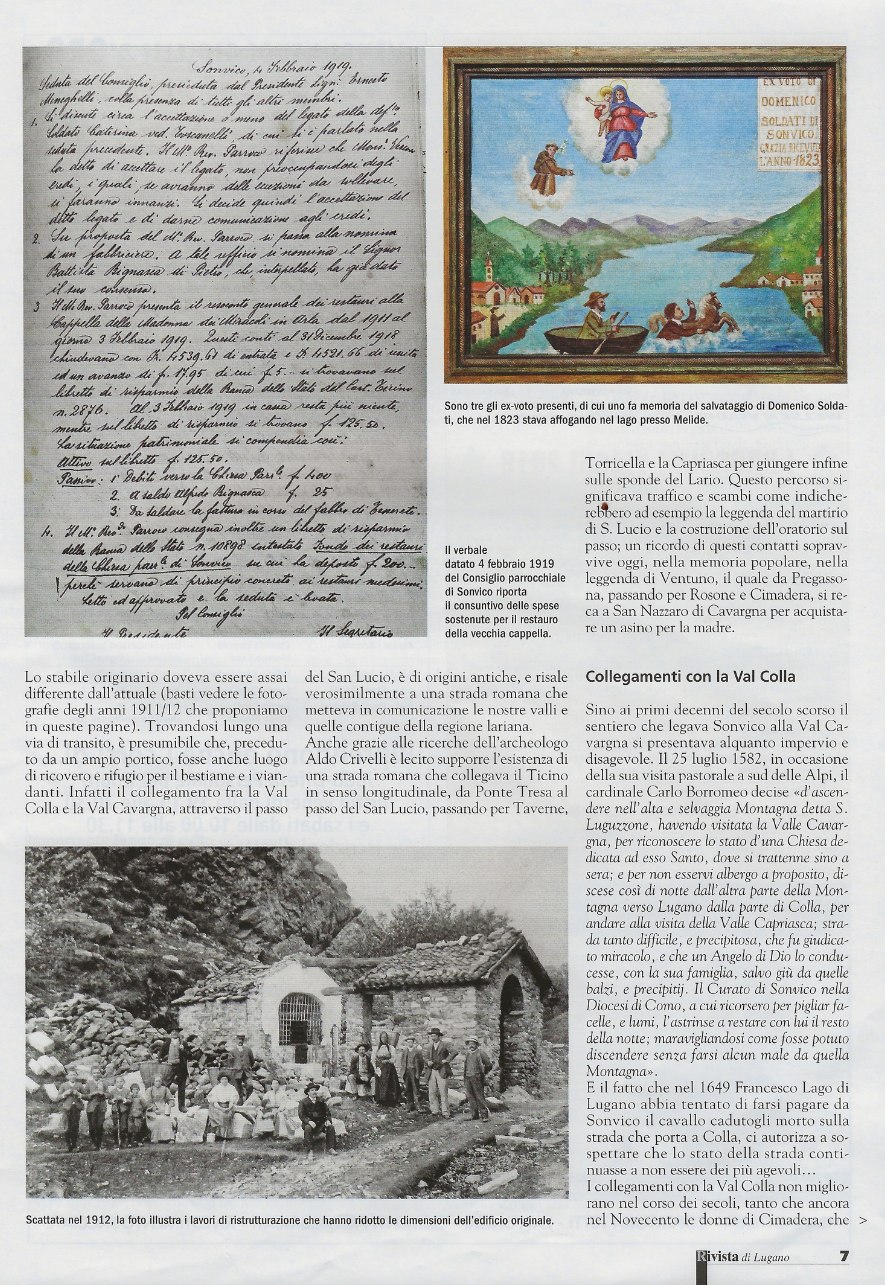 Sonvico, 4 Febbraio 1919.
Seduta del Consiglio, presieduta dal Presidente Sign. Ernesto
Meneghelli, colla presenza di tutti gli altri membri.
1. Si discute circa l'accettazione o meno del legato della def.ta
Soldati Caterina ved. Toscanelli di cui si è parlato nella
seduta precedente. Il M.o Rev. Parroco riferisce che Mons.
ha detto di accettare il legato, non preoccupandosi degli
eredi, i quali, se avranno delle eccezioni da sollevare,
si faranno innanzi. Si decide quindi l'accettazione del
detto legato e di darne comunicazione agli eredi.
2. Su proposta del M.o Rev. Parroco si passa alla nomina
di un fabbriciere. A tale ufficio si nomina il Signor
Battista Bignasca di Pietro, che interpellato, ha già dato
il suo consenso.
3 Il M.o Rev. Parroco presenta il resoconto generale dei restauri alla
Cappella della Madonna dei Miracoli in Arla dal 1911 al
giorno 3 Febbraio 1919. Questi conti al 31 Dicembre 1918
chiudevano con f. 4539.61 di entrata e f. 4521.66 di uscita
ed un avanzo di f. 17.95 di cui f. 5.- si trovavano sul
libretto di risparmio della Banca dello Stato del Cant. Ticino
n. 2876. Al 3 Febbraio 1919 in cassa resta più niente,
mentre sul libretto di risparmio si trovano f. 125.50.
La situazione patrimoniale si compendia così:
Attivo sul libretto f. 125.50.
Passivo: 1. Debito verso la Chiesa Parr.le f. 400
2. A saldo Alfredo Bignasca f. 25
3. Da saldare la fattura in corso del fabbro di
4. Il M.o Rev.do Parroco consegna inoltre un libretto di risparmio
della Banca dello Stato n. 10898 intestato Fondo dei restauri
della Chiesa parr.le di Sonvico su cui ha deposto f. 200.-
perchè servano di principio concreto ai restauri medesimi.
Letto ed approvato e la seduta è levata.
Pel Consiglio
Il Presidente Il Segretario
EX VOTO DI
DOMENICO
SOLDATI DI
SONVICO
GRAZIA RICEVUTA
L'ANNO 1823
Sono tre gli ex-voto presenti, di cui uno fa memoria del salvataggio di Domenico Solda-
ti, che nel 1823 stava affogando nel lago presso Melide.
Il verbale
datato 4 febbraio 1919
del Consiglio parrocchiale
di Sonvico riporta
il consuntivo delle spese
sostenute per il restauro
della vecchia cappella.
Lo stabile originario doveva essere assai
differente dall'attuale (basti vedere le foto-
grafie degli anni 1911/12 che proponiamo
in queste pagine). Trovandosi lungo una
via di transito, è presumibile che, precedu-
to da un ampio portico, fosse anche luogo
di ricovero e rifugio per il bestiame e i vian-
danti. Infatti il collegamento fra la Val
Colla e la Val Cavargna, attraverso il passo
del San Lucio, è di origini antiche, e risale
verosimilmente a una strada romana che
metteva in comunicazione le nostre valli e
quelle contigue della regione lariana.
Anche grazie alle ricerche dell'archeologo
Aldo Crivelli è lecito supporre l'esistenza di
una strada romana che collegava il Ticino
in senso longitudinale, da Ponte Tresa al
passo del San Lucio, passando per Taverne,
Torricella e la Capriasca per giungere infine
sulle sponde del Lario. Questo percorso si-
gnificava traffico e scambi come indiche-
rebbero ad esempio la leggenda del martirio
di S. Lucio e la costruzione dell'oratorio sul
passo; un ricordo di questi contatti soprav-
vive oggi, nella memoria popolare, nella
leggenda di Ventuno, il quale da Pregasso-
na, passando per Rosone e Cimadera, si re-
ca a San Nazzaro di Cavargna per acquista-
re un asino per la madre.
Collegamenti con la Val Colla
Sino ai primi decenni del secolo scorso il
sentiero che legava Sonvico alla Val Ca-
vargna si presentava alquanto impervio e
disagevole. Il 25 luglio 1582, in occasione
della sua visita pastorale a sud delle Alpi, il
cardinale Carlo Borromeo decise «d'ascen-
dere nell'alta e selvaggia Montagna detta S.
Luguzzone, havendo visitata la Valle Cavar-
gna, per riconoscere lo stato d'una Chiesa de-
dicata ad esso Santo, dove si trattenne sino a
sera; e per non esservi albergo a proposito, di-
scese così di notte dall'altra parte della Mon-
tagna verso Lugano dalla parte di Colla, per
andare alla visita della Valle Capriasca; stra-
da tanto difficile, e precipitosa, che fu giudica-
to miracolo, e che un Angelo di Dio lo condu-
cesse, con la sua famiglia, salvo giù da quelle
balzi, e precipitij. Il Curato di Sonvico nella
Diocesi di Como, a cui ricorsero per pigliar fa-
celle, e lumi, l'astrinse a restare con lui il resto
della notte; maravigliandosi come fosse potuto
discendere senza farsi alcun male da quella
Montagna».
E il fatto che nel 1649 Francesco Lago di
Lugano abbia tentato di farsi pagare da
Sonvico il cavallo cadutogli morto sulla
strada che porta a Colla, ci autorizza a so-
spettare che lo stato della strada conti-
nuasse a non essere dei più agevoli...
I collegamenti con la Val Colla non miglio-
rano nel corso dei secoli, tanto che ancora
nel Novecento le donne di Cimadera, che >
Scattata nel 1912, la foto illustra i lavori di ristrutturazione che hanno ridotto le dimensioni dell'edificio originale.
Rivista di Lugano 7